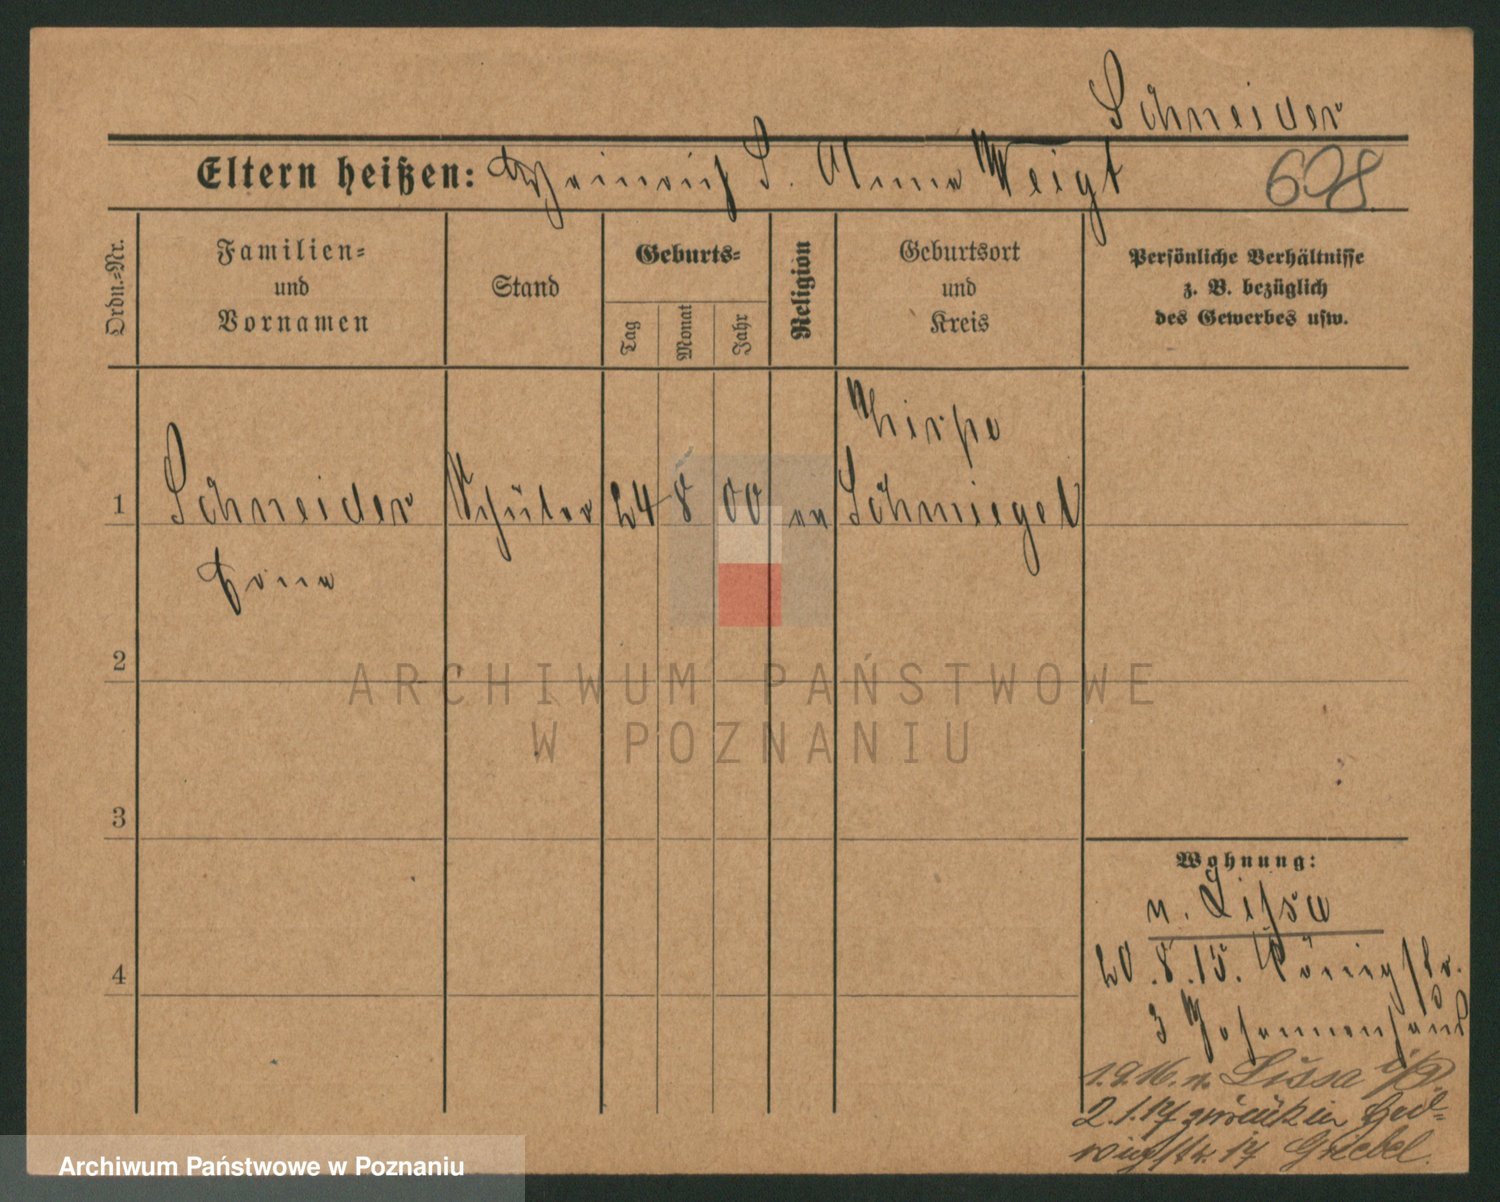 Schneider
Eltern heißen: Heinrich S. Anna Weigt
698.
Ordn.-Nr.
Familien-
und
Vornamen
Stand
Geburts-
Tag
Monat
Jahr
Religion
Geburtsort
und
Kreis
Persönliche Verhältnisse
z. B. bezüglich
des Gewerbes usw.
1
Schneider
Schüler
24
8
00
ev
Schmiegel
2
3
4
Wohnung:
n. Lissa
20.8.15. Königstr.
3 Johannenhaus
1.9.16. n. Lissa i/P.
2.1.17 zurück in Hed-
wigstr. 17 Griebel.
ARCHIWUM PAŃSTWOWE
W POZNANIU
Archiwum Państwowe w Poznaniu